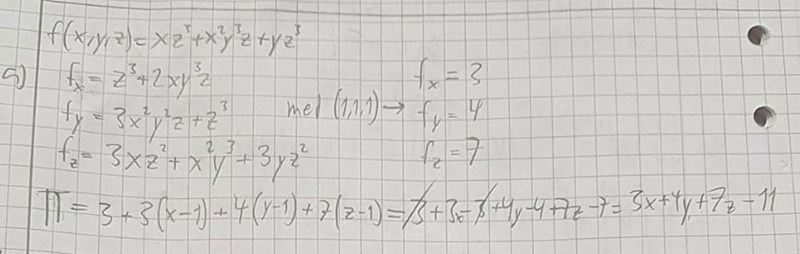 f(x,y,z)=xz³+x²y³z+yz³
a) fₓ = z³+2xy³z
fₓ = 3
f_y = 3x²y²z+z³
med (1,1,1) →
f_y = 4
f_z = 3xz²+x²y³+3yz²
f_z = 7
Π = 3+3(x-1)+4(y-1)+7(z-1)=3+3x-3+4y-4+7z-7=3x+4y+7z-11